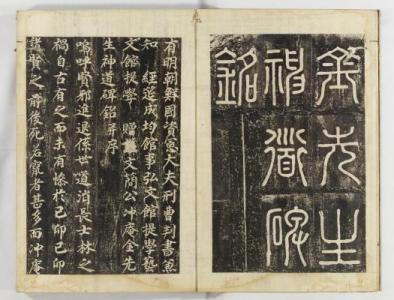 金先生
神道碑
銘
有明朝鮮國資憲大夫刑曹判書兼
知 經筵成均館事弘文館提學藝
文館提學 贈謚文簡公冲庵金先
生神道碑銘幷序
嗚呼賢邪進退係世道消長士林之
禍自古有之而未有慘於己卯己卯
諸賢之前後死若竄者甚多而冲庵